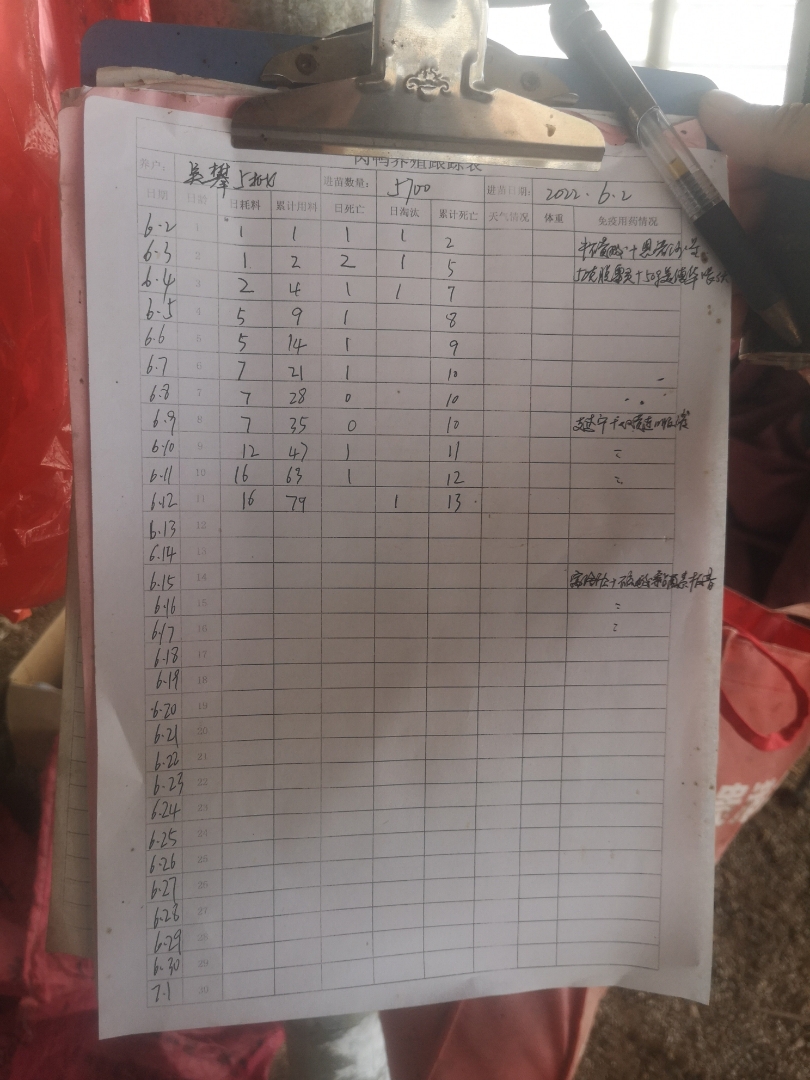 肉鸭养殖跟踪表
养户: 吴攀 进苗数量: 5700 进苗日期: 2022.6.2
日期 日龄 日耗料 累计用料 日死亡 日淘汰 累计死亡 天气情况 体重 免疫用药情况
6.2 1 1 1 1 1 2
6.3 2 1 2 2 1 5
6.4 3 2 4 1 1 7
6.5 4 5 9 1 8
6.6 5 5 14 1 9
6.7 6 7 21 1 10
6.8 7 7 28 0 10
6.9 8 7 35 0 10
6.10 9 12 47 1 11
6.11 10 16 63 1 12
6.12 11 16 79 1 13
6.13 12
6.14 13
6.15 14
6.16 15
6.17 16
6.18 17
6.19 18
6.20 19
6.21 20
6.22 21
6.23 22
6.24 23
6.25 24
6.26 25
6.27 26
6.28 27
6.29 28
6.30 29
7.1 30